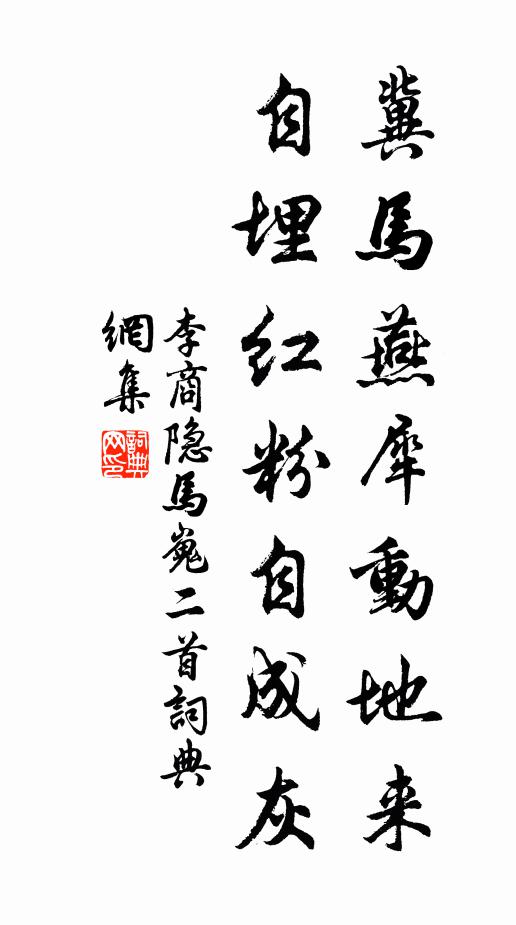 冀馬燕犀動地来
自埋红粉自成灰
李商隐馬嵬二首詞典
網集
詞典网印